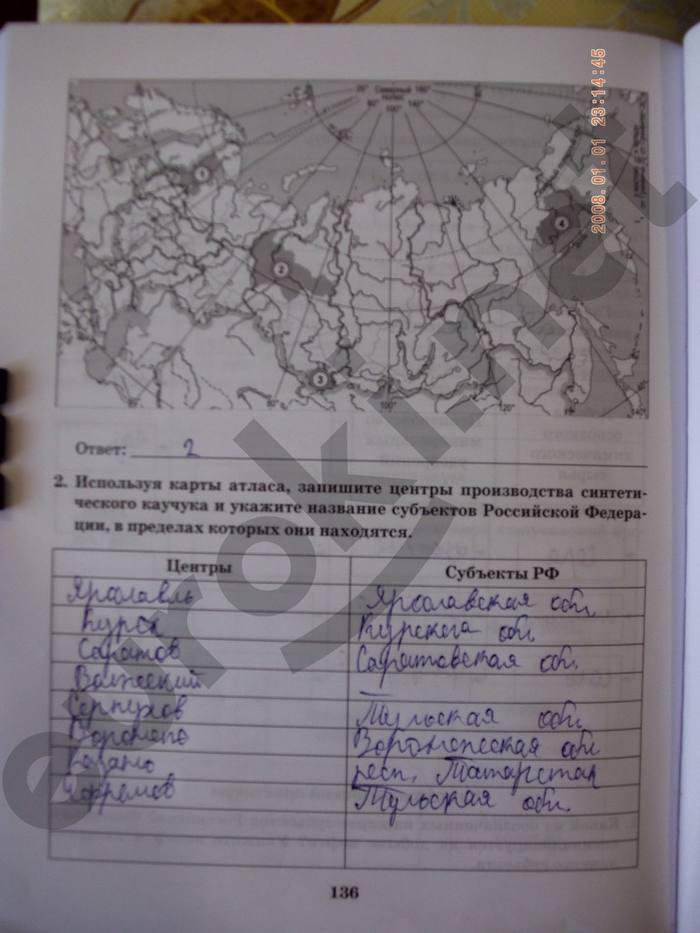 2008.01.01 23:14:45
Северный полюс
20° 180°
60° 140°
100°
1
2
3
4
80° 100° 120° 140°
Ответ: 2
2. Используя карты атласа, запишите центры производства синтети-
ческого каучука и укажите название субъектов Российской Федера-
ции, в пределах которых они находятся.
Центры Субъекты РФ
Ярославль Ярославская обл.
Курск Курская обл.
Саратов Саратовская обл.
Волжский —
Серпухов Тульская обл.
Воронеж Воронежская обл
Казань респ. Татарстан
Ефремов Тульская обл.
136
eurokinet